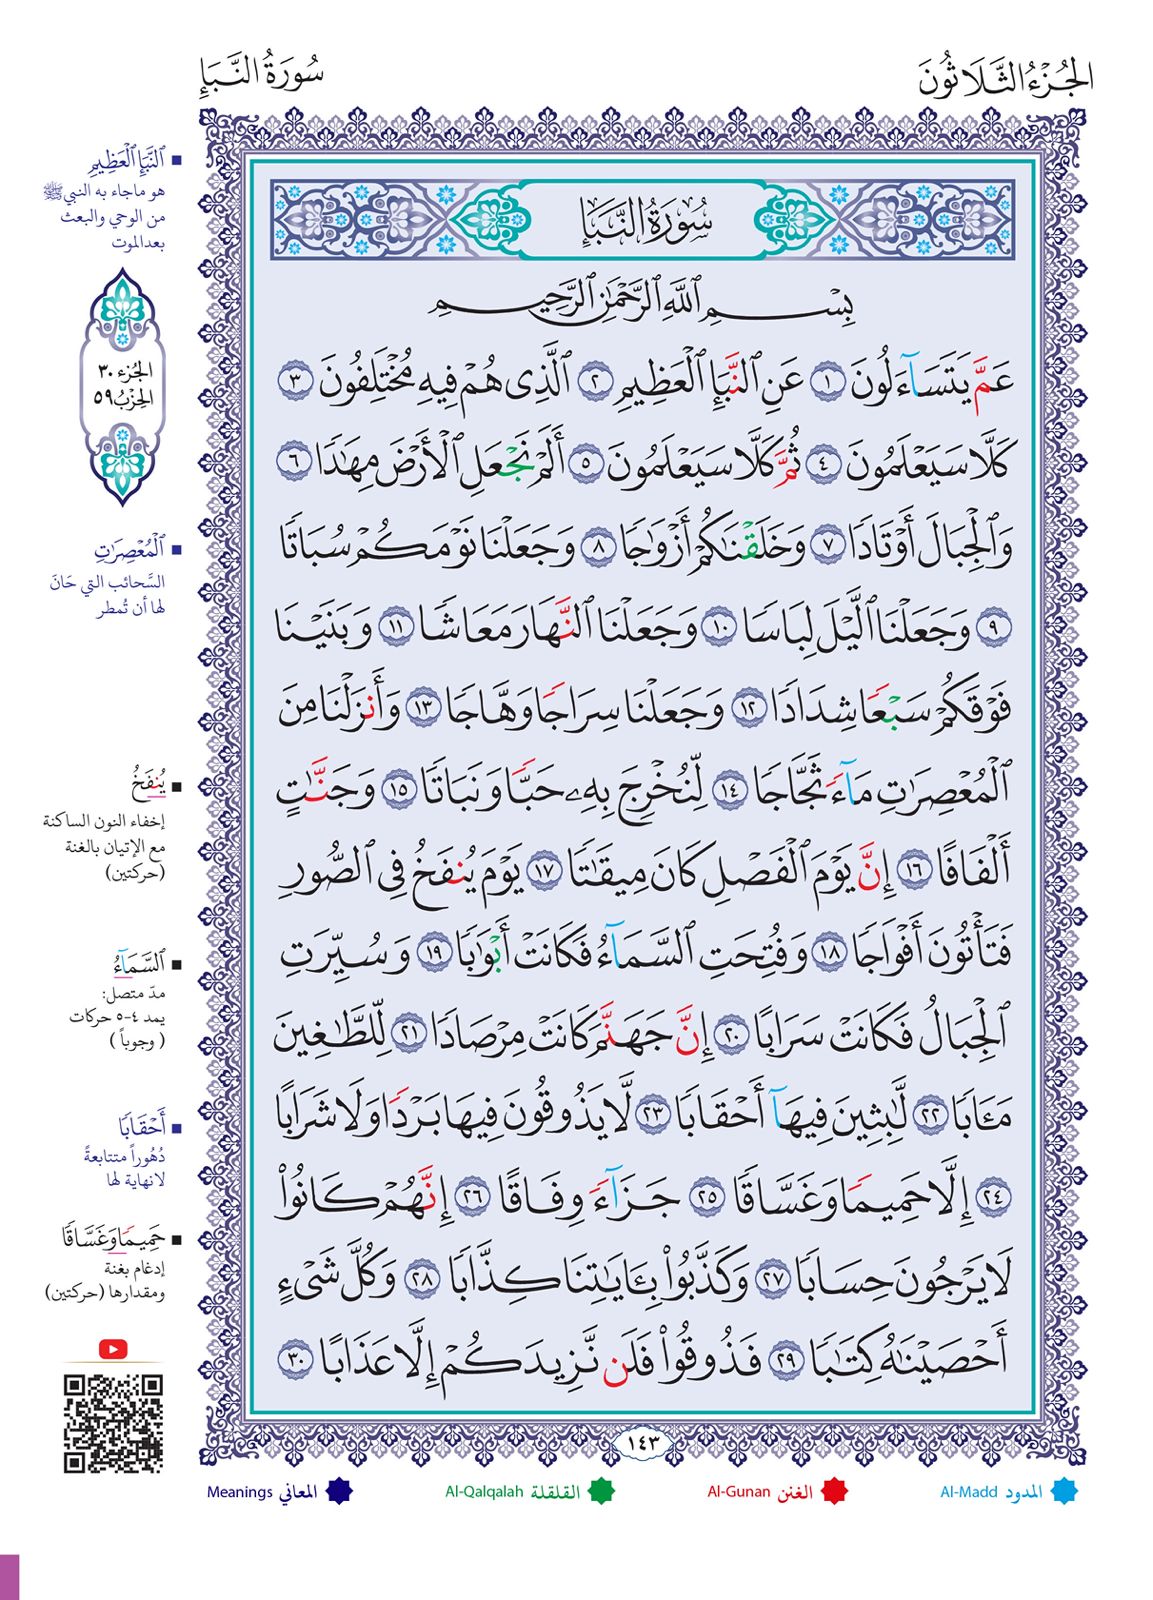 الجُزْءُ الثَّلَاثُونَ
سُورَةُ النَّبَإِ
سُورَةُ النَّبَإِ
بِسْمِ ٱللَّهِ ٱلرَّحْمَٰنِ ٱلرَّحِيمِ
عَمَّ يَتَسَآءَلُونَ ١ عَنِ ٱلنَّبَإِ ٱلْعَظِيمِ ٢ ٱلَّذِى هُمْ فِيهِ مُخْتَلِفُونَ ٣
كَلَّا سَيَعْلَمُونَ ٤ ثُمَّ كَلَّا سَيَعْلَمُونَ ٥ أَلَمْ نَجْعَلِ ٱلْأَرْضَ مِهَٰدًا ٦
وَٱلْجِبَالَ أَوْتَادًا ٧ وَخَلَقْنَٰكُمْ أَزْوَٰجًا ٨ وَجَعَلْنَا نَوْمَكُمْ سُبَاتًا
٩ وَجَعَلْنَا ٱلَّيْلَ لِبَاسًا ١٠ وَجَعَلْنَا ٱلنَّهَارَ مَعَاشًا ١١ وَبَنَيْنَا
فَوْقَكُمْ سَبْعًا شِدَادًا ١٢ وَجَعَلْنَا سِرَاجًا وَهَّاجًا ١٣ وَأَنزَلْنَا مِنَ
ٱلْمُعْصِرَٰتِ مَآءً ثَجَّاجًا ١٤ لِّنُخْرِجَ بِهِۦ حَبًّا وَنَبَاتًا ١٥ وَجَنَّٰتٍ
أَلْفَافًا ١٦ إِنَّ يَوْمَ ٱلْفَصْلِ كَانَ مِيقَٰتًا ١٧ يَوْمَ يُنفَخُ فِى ٱلصُّورِ
فَتَأْتُونَ أَفْوَاجًا ١٨ وَفُتِحَتِ ٱلسَّمَآءُ فَكَانَتْ أَبْوَٰبًا ١٩ وَسُيِّرَتِ
ٱلْجِبَالُ فَكَانَتْ سَرَابًا ٢٠ إِنَّ جَهَنَّمَ كَانَتْ مِرْصَادًا ٢١ لِّلطَّٰغِينَ
مَـَٔابًا ٢٢ لَّٰبِثِينَ فِيهَآ أَحْقَابًا ٢٣ لَّا يَذُوقُونَ فِيهَا بَرْدًا وَلَا شَرَابًا
٢٤ إِلَّا حَمِيمًا وَغَسَّاقًا ٢٥ جَزَآءً وِفَاقًا ٢٦ إِنَّهُمْ كَانُوا۟
لَا يَرْجُونَ حِسَابًا ٢٧ وَكَذَّبُوا۟ بِـَٔايَٰتِنَا كِذَّابًا ٢٨ وَكُلَّ شَىْءٍ
أَحْصَيْنَٰهُ كِتَٰبًا ٢٩ فَذُوقُوا۟ فَلَن نَّزِيدَكُمْ إِلَّا عَذَابًا ٣٠
١٤٣
ٱلنَّبَإِ ٱلْعَظِيمِ
هو ماجاء به النبي ﷺ
من الوحي والبعث
بعدالموت
الجُزء ٣٠
الحِزْبُ ٥٩
ٱلْمُعْصِرَٰتِ
السَّحائب التي حَانَ
لها أن تُمطر
يُنفَخُ
إخفاء النون الساكنة
مع الإتيان بالغنة
(حركتين)
ٱلسَّمَآءُ
مدّ متصل:
يمد ٤-٥ حركات
( وجوباً )
أَحْقَابًا
دُهُوراً متتابعةً
لانهاية لها
حَمِيمًا وَغَسَّاقًا
إدغام بغنة
ومقدارها (حركتين)
المدود Al-Madd
الغنن Al-Gunan
القلقلة Al-Qalqalah
المعاني Meanings